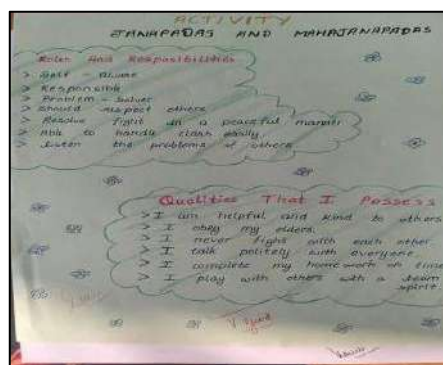 ACTIVITY
JANAPADAS AND MAHAJANAPADAS
Roles And Resposibilities
> Self - Aware
> Responsible
> Problem - Solver
> Should respect others
> Resolve fight in a peaceful manner
> Able to handle clash easily
> Listen the problems of others
Qualities That I Possess
> I am helpful and kind to others
> I obey my elders.
> I never fight with each other
> I talk politely with everyone
> I complete my homework on time
> I play with others with a team
spirit